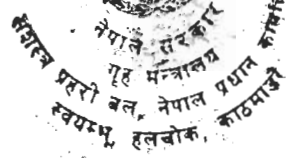 नेपाल सरकार
गृह मन्त्रालय
सशस्त्र प्रहरी बल, नेपाल प्रधान
स्वयम्भू, हलचोक, काठमाडौं